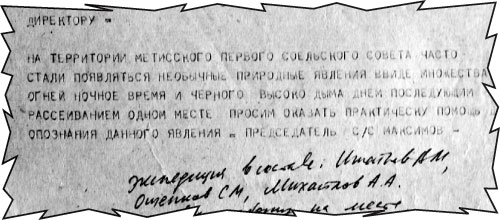 ДИРЕКТОРУ =
НА ТЕРРИТОРИИ МЕТИССКОГО ПЕРВОГО СОЕЛЬСКОГО СОВЕТА ЧАСТО
СТАЛИ ПОЯВЛЯТЬСЯ НЕОБЫЧНЫЕ ПРИРОДНЫЕ ЯВЛЕНИЯ ВВИДЕ МНОЖЕСТВА
ОГНЕЙ НОЧНОЕ ВРЕМЯ И ЧЕРНОГО ВЫСОКО ДЫМА ДНЕМ ПОСЛЕДУЮЩИМ
РАССЕИВАНИЕМ ОДНОМ МЕСТЕ ПРОСИМ ОКАЗАТЬ ПРАКТИЧЕСКУ ПОМОЩЬ
ОПОЗНАНИЯ ДАННОГО ЯВЛЕНИЯ = ПРЕДСЕДАТЕЛЬ С/С МАКСИМОВ -
экспедиция в составе: Игнатьев А.М,
С.М, Михайлов А.А.
на месте